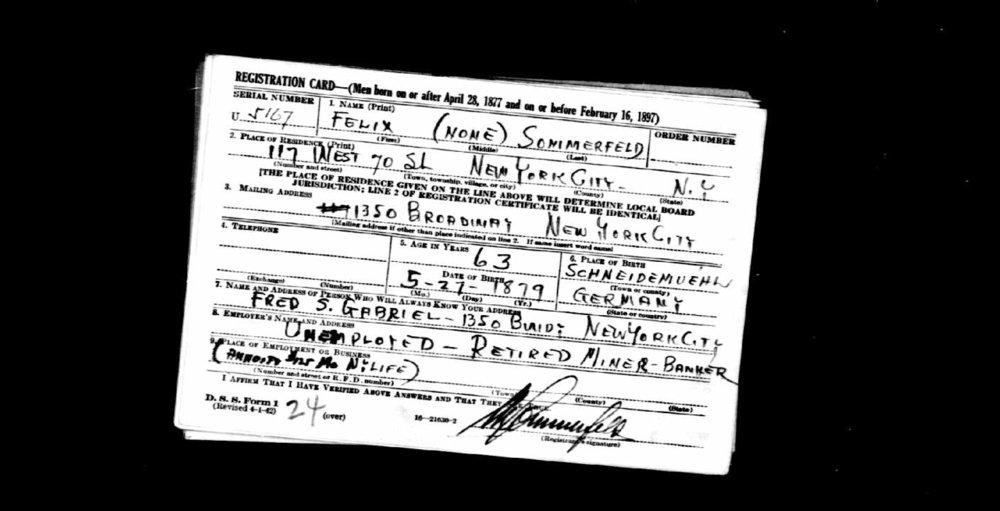 REGISTRATION CARD—(Men born on or after April 28, 1877 and on or before February 16, 1897)
SERIAL NUMBER 1. NAME (Print) ORDER NUMBER
U 5167 FELIX (NONE) SOMMERFELD
(First) (Middle) (Last)
2. PLACE OF RESIDENCE (Print)
117 WEST 70 St NEW YORK CITY N.Y
(Number and street) (Town, township, village, or city) (County) (State)
[THE PLACE OF RESIDENCE GIVEN ON THE LINE ABOVE WILL DETERMINE LOCAL BOARD
JURISDICTION; LINE 2 OF REGISTRATION CERTIFICATE WILL BE IDENTICAL]
3. MAILING ADDRESS
1350 BROADWAY NEW YORK CITY
(Mailing address if other than place indicated on line 2. If same insert word same)
4. TELEPHONE 5. AGE IN YEARS 6. PLACE OF BIRTH
63 SCHNEIDEMUEHL
DATE OF BIRTH (Town or county)
5-27-1879 GERMANY
(Exchange) (Number) (Mo.) (Day) (Yr.) (State or country)
7. NAME AND ADDRESS OF PERSON WHO WILL ALWAYS KNOW YOUR ADDRESS
FRED S. GABRIEL-1350 NEW YORK CITY
8. EMPLOYER'S NAME AND ADDRESS
UNEMPLOYED - RETIRED MINER-BANKER
9. PLACE OF EMPLOYMENT OR BUSINESS
LIFE)
(Number and street or R. F. D. number) (Town) (County) (State)
I AFFIRM THAT I HAVE VERIFIED ABOVE ANSWERS AND THAT THEY
D. S. S. Form 1
(Revised 4-1-42) 24 (over) 16—21630-2 (Registrant's signature)